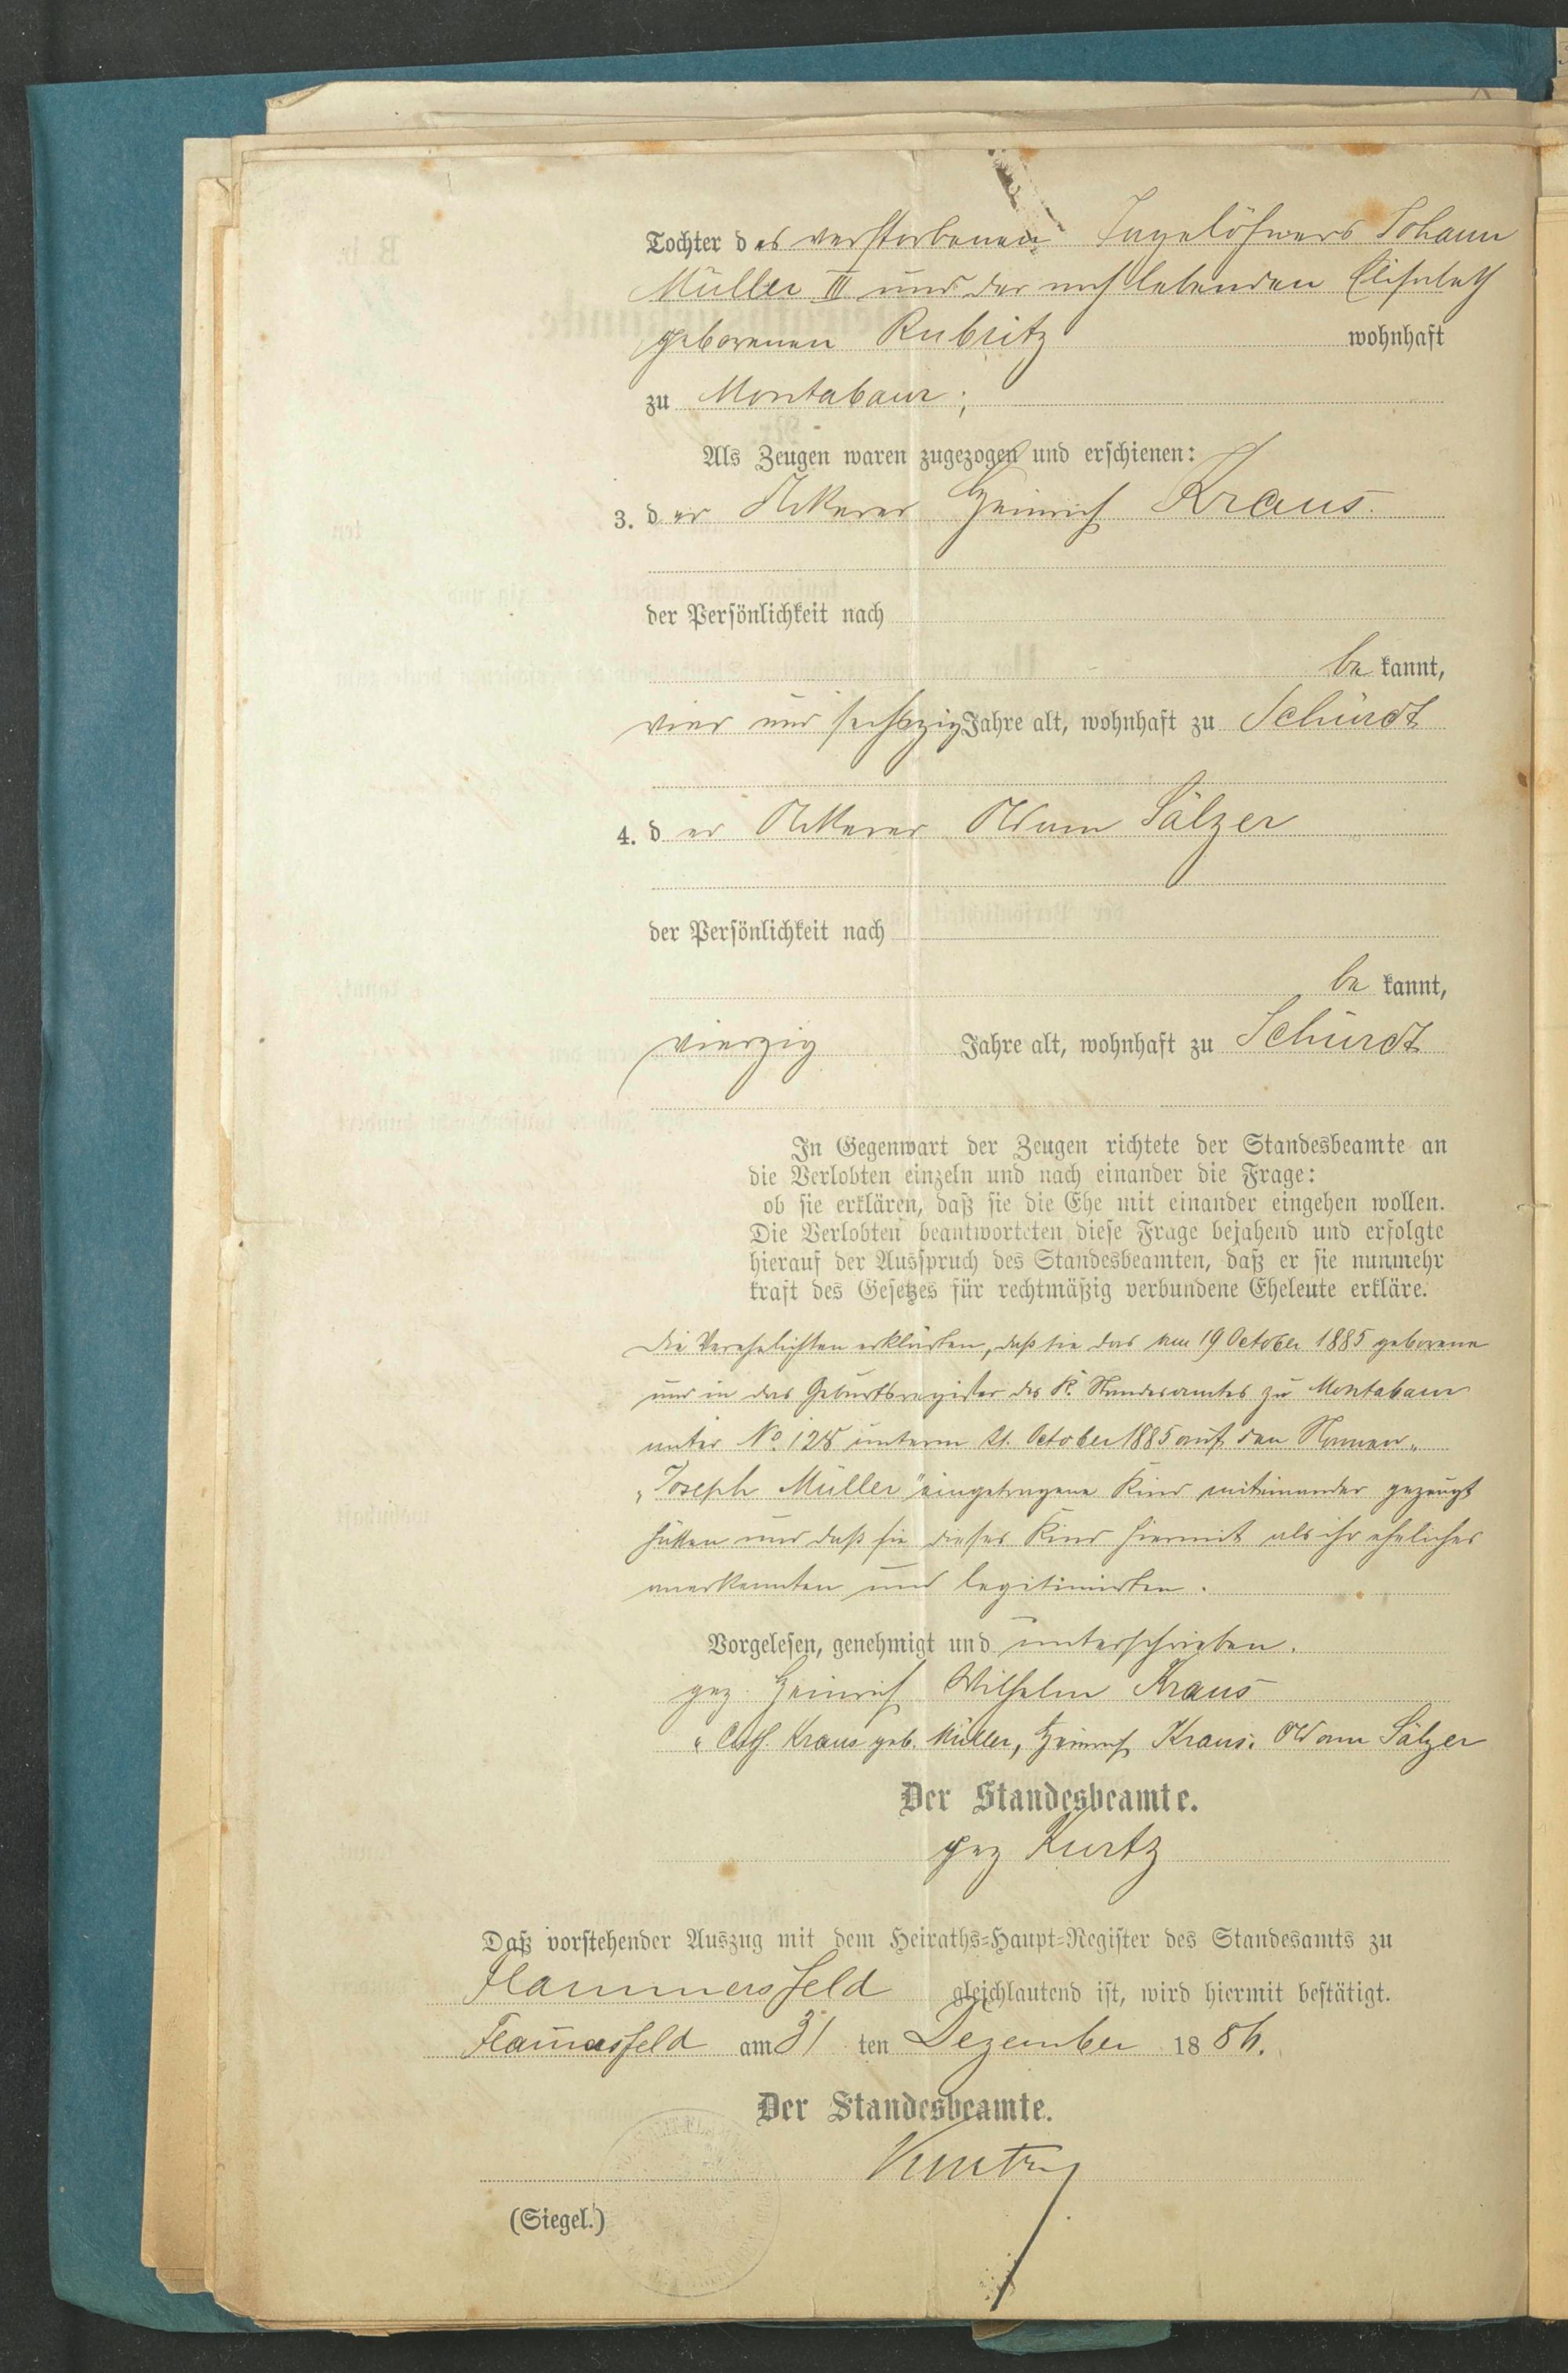 Tochter des verstorbenen Tagelöhners Johann
Müller III und der noch lebenden Elisabeth
geborenen Rubritz wohnhaft
zu Montabaur;
Als Zeugen waren zugezogen und erschienen:
3. der Ackerer Heinrich Kraus.
der Persönlichkeit nach
be kannt,
vier und sechszig Jahre alt, wohnhaft zu Schürdt
4. der Ackerer Adam Sälzer
der Persönlichkeit nach
be kannt,
vierzig Jahre alt, wohnhaft zu Schürdt
In Gegenwart der Zeugen richtete der Standesbeamte an
die Verlobten einzeln und nach einander die Frage:
ob sie erklären, daß sie die Ehe mit einander eingehen wollen.
Die Verlobten beantworteten diese Frage bejahend und erfolgte
hierauf der Ausspruch des Standesbeamten, daß er sie nunmehr
kraft des Gesetzes für rechtmäßig verbundene Eheleute erkläre.
Die Verehelichten erklärten, daß sie das am 19 October 1885 geborene
und in das Geburtsregister des K. Standesamtes zu Montabaur
unter No. 128 unterm 21. October 1885 auf den Namen
„Joseph Müller" eingetragene Kind miteinander gezeugt
hätten und daß sie dieses Kind hiermit als ihr eheliches
anerkennten und legitimirten.
Vorgelesen, genehmigt und unterschrieben.
gez. Heinrich Wilhelm Kraus
" Cath. Kraus geb. Müller, Heinrich Kraus. Adam Sälzer
Der Standesbeamte.
gez Kurtz
Daß vorstehender Auszug mit dem Heiraths-Haupt-Register des Standesamts zu
Flammersfeld gleichlautend ist, wird hiermit bestätigt.
Flam̅ersfeld am 31 ten Dezember 1886.
Der Standesbeamte.
Kurtz
(Siegel.)